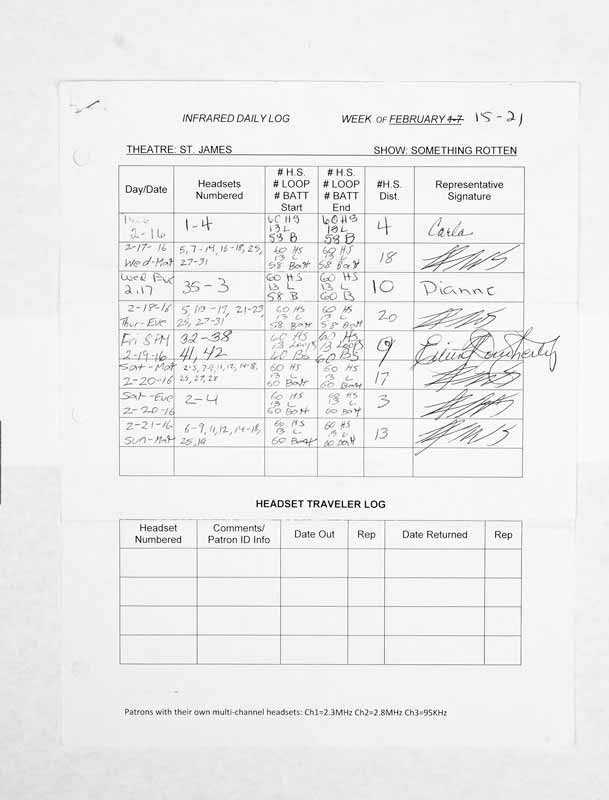 INFRARED DAILY LOG WEEK OF FEBRUARY 1-7 15-21
THEATRE: ST. JAMES SHOW: SOMETHING ROTTEN
Day/Date Headsets Numbered # H.S. # LOOP # BATT Start # H.S. # LOOP # BATT End #H.S. Dist. Representative Signature
2-16 1-4 60 HS 13 L 58 B 60 HS 13 L 58 B 4 Carla
2-17-16 Wed-Mat 5, 7-14, 16-18, 25, 27-31 60 HS 13 L 58 Batt 60 HS 13 L 58 Batt 18
Wed Eve 2.17 35-3 60 HS 13 L 58 B 60 HS 13 L 60 B 10 Dianne
2-18-16 Thur-Eve 5, 10-19, 21-23, 25, 27-31 60 HS 13 L 58 Batt 60 HS 13 L 58 Batt 20
Fri 8 PM 2-19-16 32-38 41, 42 60 HS 13 Loops 60 Bs 60 HS 13 Loops 60 BS 9 Eileen Dougherty
Sat-Mat 2-20-16 2-5, 7-9, 11, 12, 14-18, 25, 27, 28 60 HS 13 L 60 Batt 60 HS 13 L 60 Batt 17
Sat-Eve 2-20-16 2-4 60 HS 13 L 60 Batt 60 HS 13 L 60 Batt 3
2-21-16 Sun-Mat 6-9, 11, 12, 14-18, 25, 60 HS 13 L 60 Batt 60 HS 13 L 60 Batt 13
HEADSET TRAVELER LOG
Headset Numbered Comments/ Patron ID Info Date Out Rep Date Returned Rep
Patrons with their own multi-channel headsets: Ch1=2.3MHz Ch2=2.8MHz Ch3=95KHz